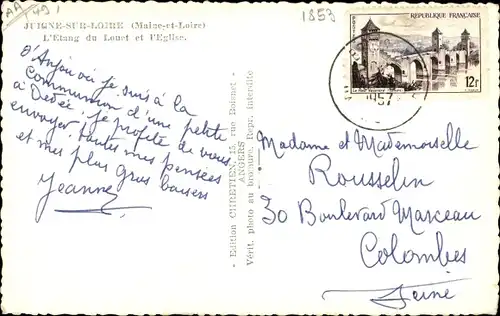 JUIGNE-SUR-LOIRE (Maine-et-Loire)
L'Etang du Louet et l'Eglise.
1853
RÉPUBLIQUE FRANÇAISE
12F
1957
d'Anjou où je suis à la
Communion d'une petite
à Dédée je profite de vous
envoyer toutes mes pensées
et mes plus gros baisers
Jeanne
- Edition CHRETIEN, 15, rue
ANGERS
Vérit. photo au bromure. Repr. interdite
Madame et Mademoiselle
Rousselin
30 Boulevard Marceau
Colombes
Seine